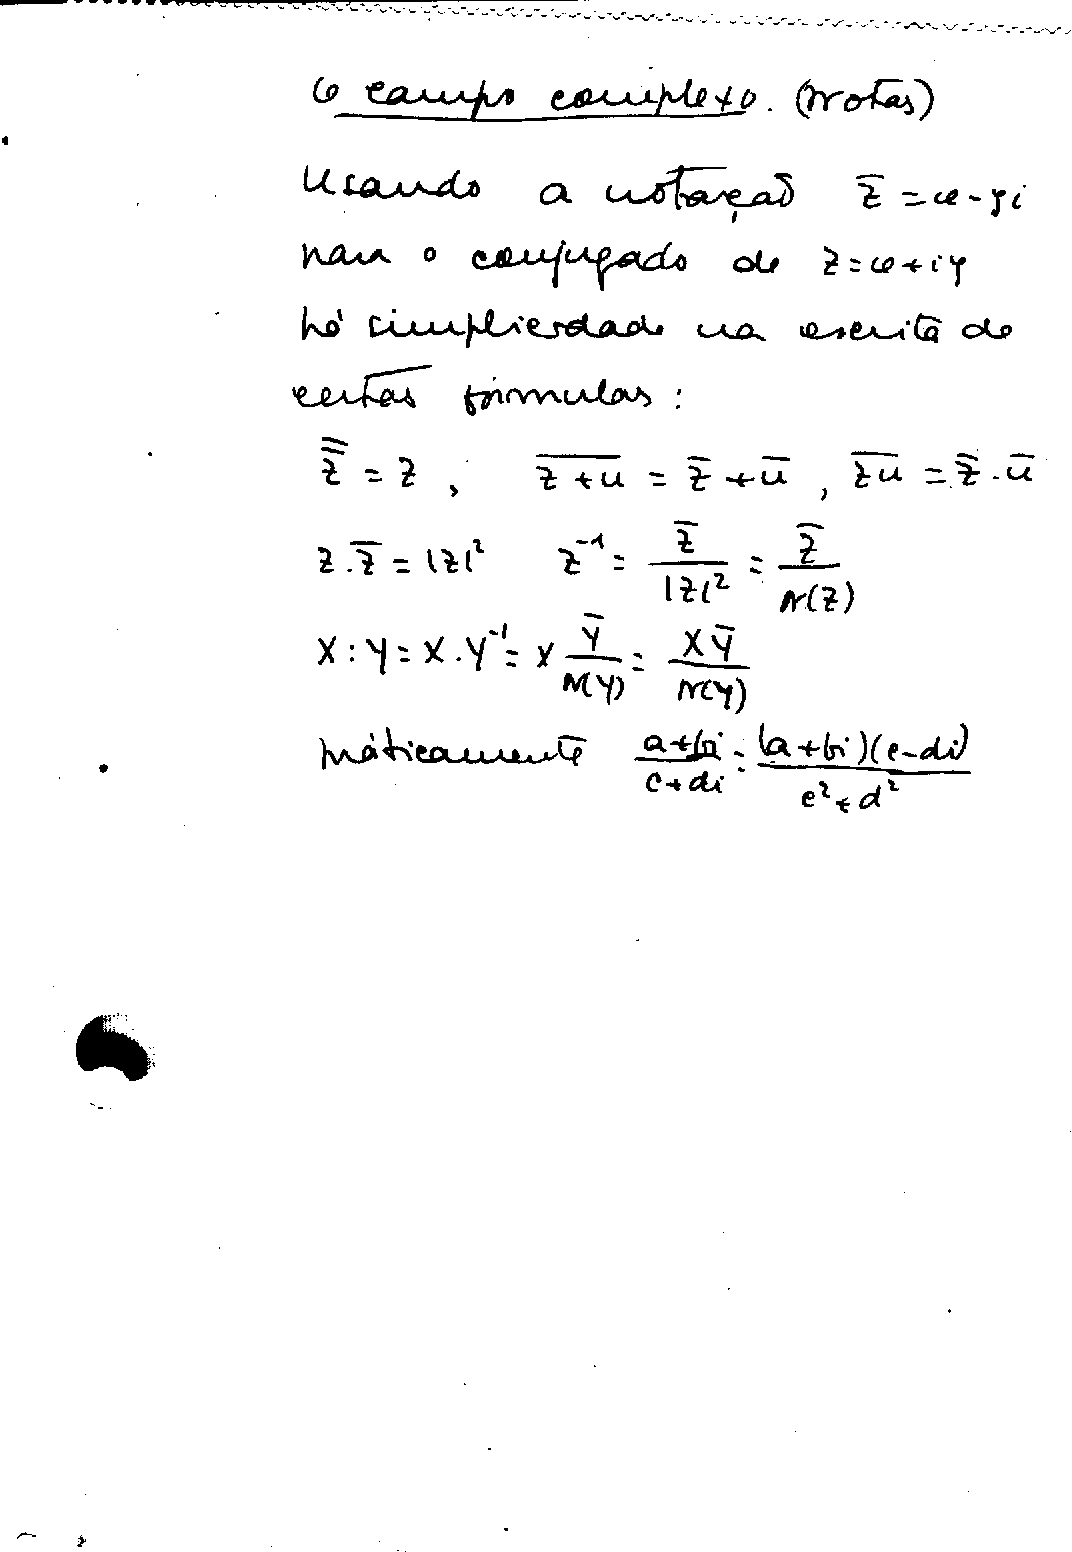 O campo complexo. (Notas)
Usando a notação z̅ = x - yi
para o conjugado de z = x + iy
há simplicidade na escrita de
certas fórmulas :
z̿ = z , \overline{z+u} = z̅ + u̅ , \overline{zu} = z̅ . u̅
z . z̅ = |z|² z⁻¹ = z̅ / |z|² = z̅ / N(z)
X : Y = X . Y⁻¹ = X Y̅ / N(Y) = X Y̅ / N(Y)
práticamente (a+bi) / (c+di) = (a+bi)(c-di) / (c² + d²)